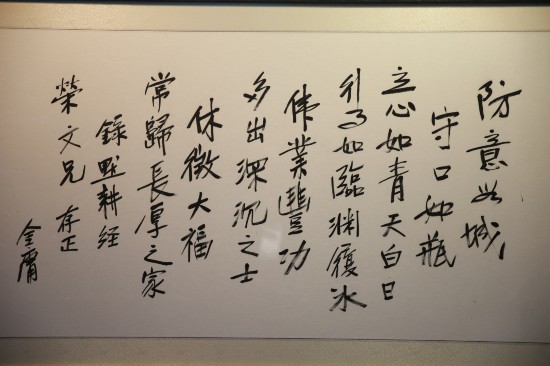 防意如城
守口如瓶
立心如青天白日
行己如臨淵履冰
偉業豐功
多出深沉之士
休徵大福
常歸長厚之家
錄默耕經
榮文兄 存正
金庸